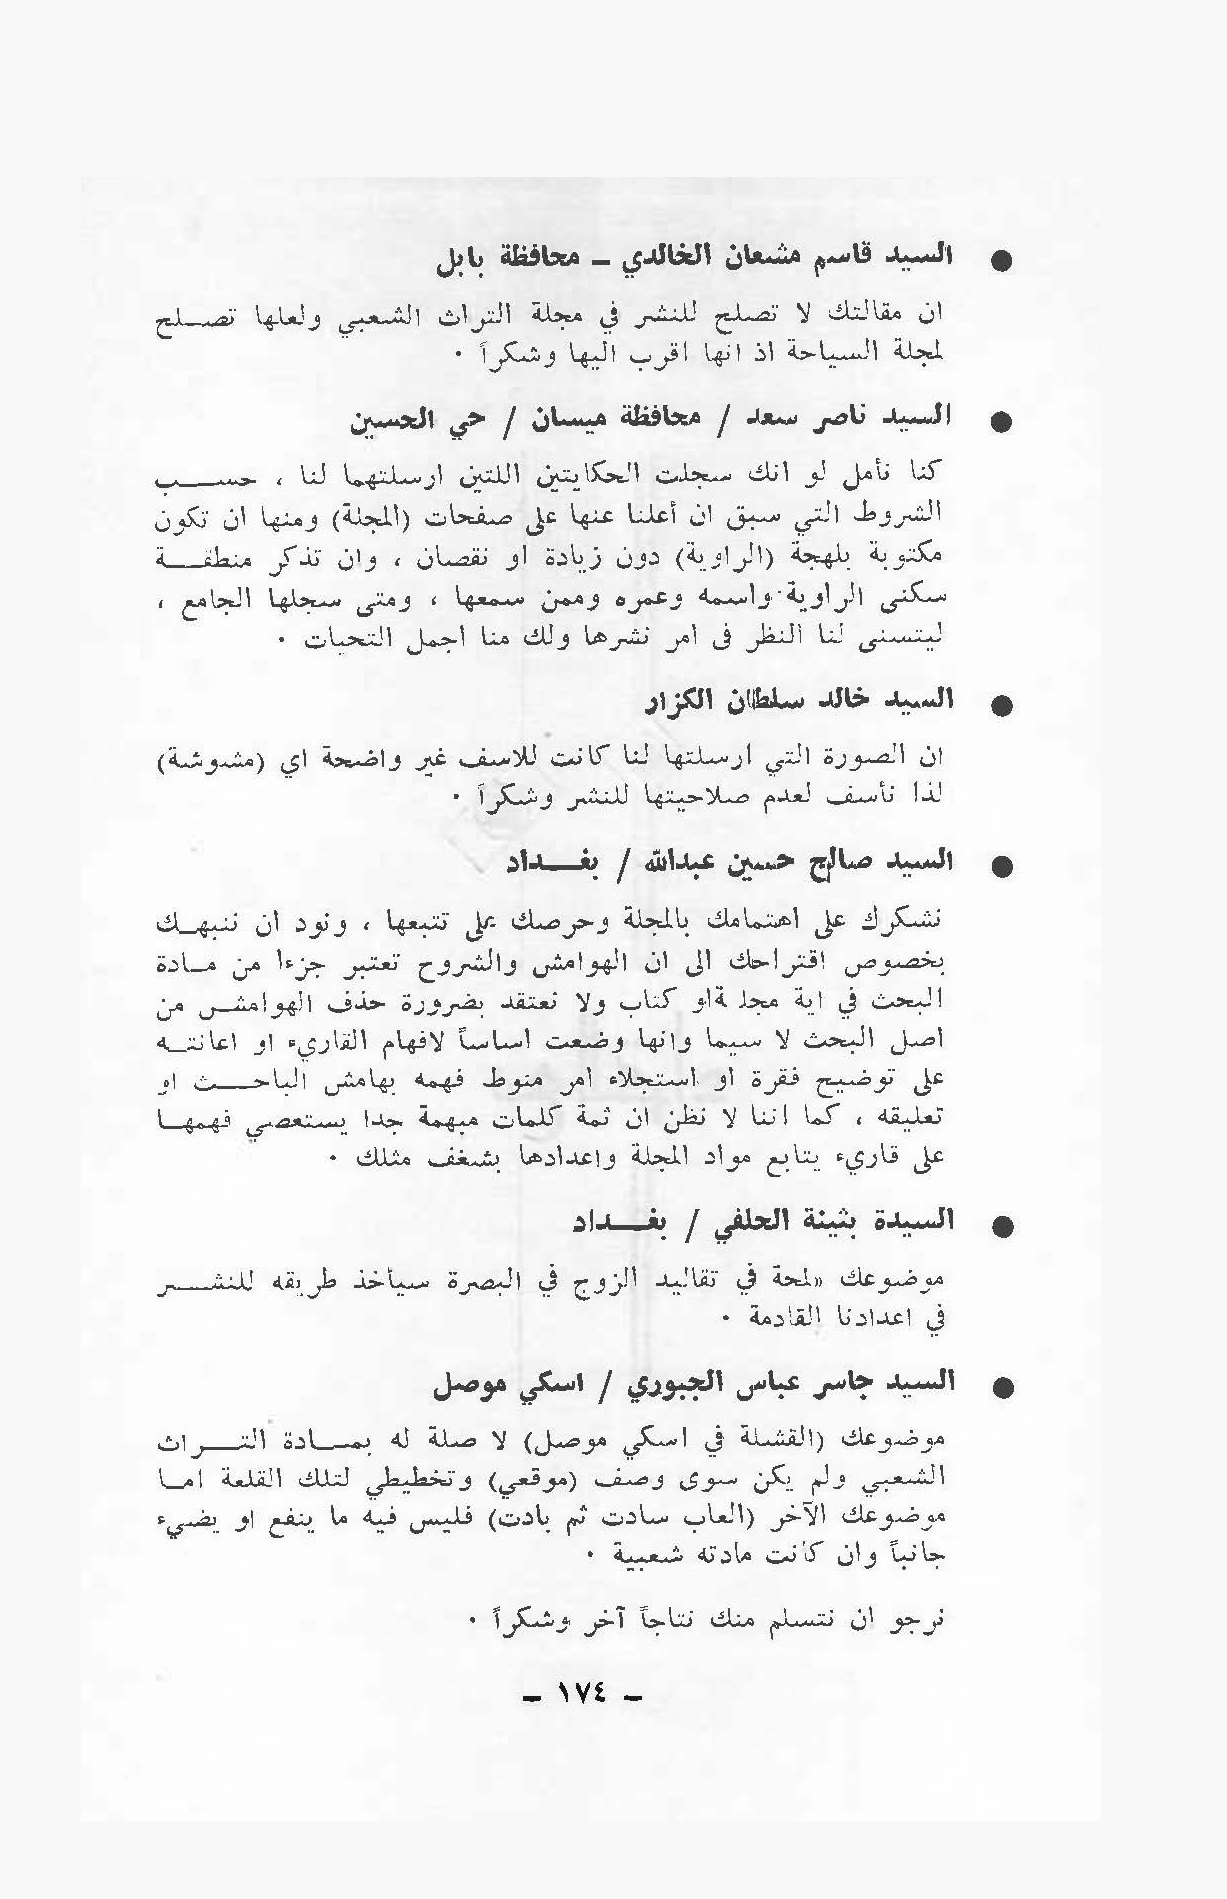 ● السيد قاسم مشعان الخالدي – محافظة بابل
ان مقالتك لا تصلح للنشر في مجلة التراث الشعبي ولعلها تصلح
لمجلة السياحة اذ انها اقرب اليها وشكراً .
● السيد ناصر سعد / محافظة ميسان / حي الحسين
كنا نأمل لو انك سجلت الحكايتين اللتين ارسلتهما لنا ، حسب
الشروط التي سبق ان أعلنا عنها على صفحات (المجلة) ومنها ان تكون
مكتوبة بلهجة (الراوية) دون زيادة او نقصان ، وان تذكر منطقة
سكنى الراوية واسمه وعمره وممن سمعها ، ومتى سجلها الجامع ،
ليتسنى لنا النظر في امر نشرها ولك منا اجمل التحيات .
● السيد خالد سلطان الكزار
ان الصورة التي ارسلتها لنا كانت للاسف غير واضحة اي (مشوشة)
لذا نأسف لعدم صلاحيتها للنشر وشكراً .
● السيد صالح حسين عبدالله / بغداد
نشكرك على اهتمامك بالمجلة وحرصك على تتبعها ، ونود ان ننبهك
بخصوص اقتراحك الى ان الهوامش والشروح تعتبر جزءا من مادة
البحث في اية مجلة او كتاب ولا نعتقد بضرورة حذف الهوامش من
اصل البحث لا سيما وانها وضعت اساساً لافهام القاريء او اعانته
على توضيح فقرة او استجلاء امر منوط فهمه بهامش الباحث او
تعليقه ، كما اننا لا نظن ان ثمة كلمات مبهمة جدا يستعصي فهمها
على قاريء يتابع مواد المجلة واعدادها بشغف مثلك .
● السيدة بثينة الحلفي / بغداد
موضوعك «لمحة في تقاليد الزوج في البصرة سيأخذ طريقه للنشر
في اعدادنا القادمة .
● السيد جاسر عباس الجبوري / اسكي موصل
موضوعك (القشلة في اسكي موصل) لا صلة له بمادة التراث
الشعبي ولم يكن سوى وصف (موقعي) وتخطيطي لتلك القلعة اما
موضوعك الآخر (العاب سادت ثم بادت) فليس فيه ما ينفع او يضيء
جانباً وان كانت مادته شعبية .
نرجو ان نتسلم منك نتاجاً آخر وشكراً .
– ١٧٤ –